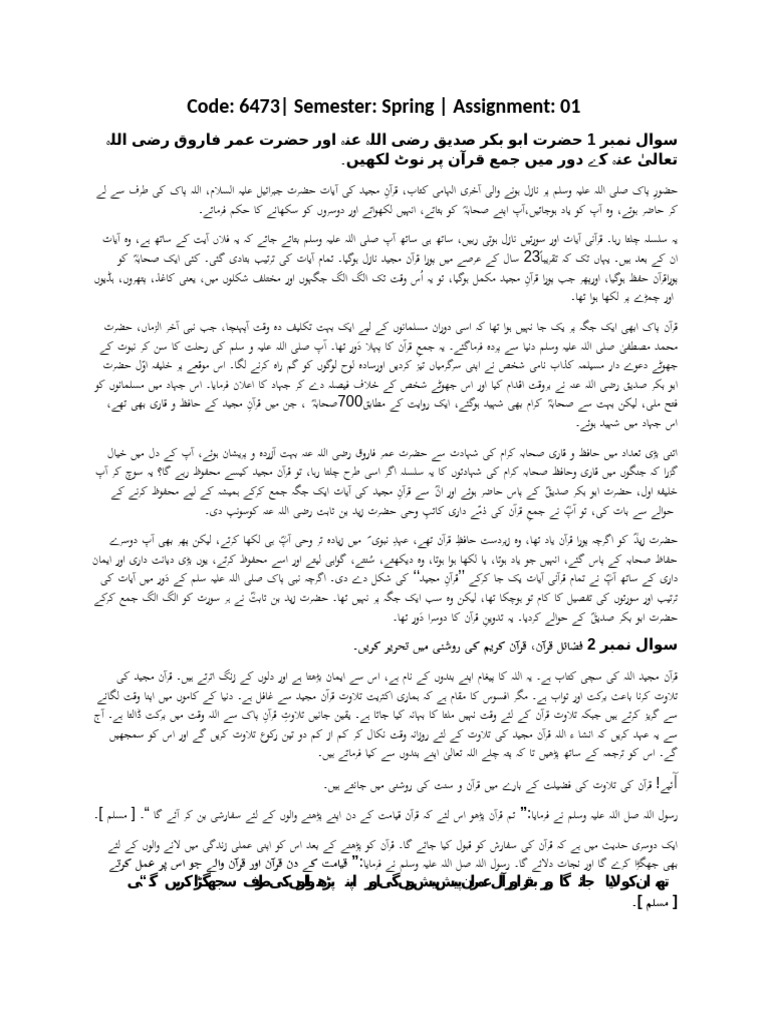 Code: 6473| Semester: Spring | Assignment: 01
سوال نمبر 1 حضرت ابو بکر صدیق رضی اللہ عنہ اور حضرت عمر فاروق رضی اللہ
تعالیٰ عنہ کے دور میں جمع قرآن پر نوٹ لکھیں۔
حضورِ پاک صلی اللہ علیہ وسلم پر نازل ہونے والی آخری الہامی کتاب، قرآنِ مجید کی آیات حضرت جبرائیل علیہ السلام، اللہ پاک کی طرف سے لے
کر حاضر ہوتے، وہ آپ کو یاد ہوجاتیں،آپ اپنے صحابہؓ کو بتاتے، انہیں لکھواتے اور دوسروں کو سکھانے کا حکم فرماتے۔
یہ سلسلہ چلتا رہا۔ قرآنی آیات اور سورتیں نازل ہوتی رہیں، ساتھ ہی ساتھ آپ صلی اللہ علیہ وسلم بتاتے جاتے کہ یہ فلاں آیت کے ساتھ ہے، وہ آیات
ان کے بعد ہیں۔ یہاں تک کہ تقریباً23 سال کے عرصے میں پورا قرآن مجید نازل ہوگیا۔ تمام آیات کی ترتیب بتادی گئی۔ کئی ایک صحابہؓ کو
پوراقرآن حفظ ہوگیا، اورپھر جب پورا قرآنِ مجید مکمل ہوگیا، تو یہ اُس وقت تک الگ الگ جگہوں اور مختلف شکلوں میں، یعنی کاغذ، پتھروں، ہڈیوں
اور چمڑے پر لکھا ہوا تھا۔
قرآن پاک ابھی ایک جگہ پر یک جا نہیں ہوا تھا کہ اسی دوران مسلمانوں کے لیے ایک بہت تکلیف دہ وقت آپہنچا، جب نبی آخر الزماں، حضرت
محمد مصطفیٰ صلی اللہ علیہ وسلم دنیا سے پردہ فرماگئے۔ یہ جمعِ قرآن کا پہلا دَور تھا۔ آپ صلی اللہ علیہ و سلم کی رحلت کا سن کر نبوت کے
جھوٹے دعوے دار مسیلمہ کذاب نامی شخص نے اپنی سرگرمیاں تیز کردیں اورسادہ لوح لوگوں کو گم راہ کرنے لگا۔ اس موقعے پر خلیفہ اوّل حضرت
ابو بکر صدیق رضی اللہ عنہ نے بروقت اقدام کیا اور اس جھوٹے شخص کے خلاف فیصلہ دے کر جہاد کا اعلان فرمایا۔ اس جہاد میں مسلمانوں کو
فتح ملی، لیکن بہت سے صحابہؓ کرام بھی شہید ہوگئے، ایک روایت کے مطابق700صحابہؓ ، جن میں قرآنِ مجید کے حافظ و قاری بھی تھے،
اس جہاد میں شہید ہوئے۔
اتنی بڑی تعداد میں حافظ و قاری صحابہ کرام کی شہادت سے حضرت عمر فاروق رضی اللہ عنہ بہت آزردہ و پریشان ہوئے، آپ کے دل میں خیال
گزرا کہ جنگوں میں قاری وحافظ صحابہ کرام کی شہادتوں کا یہ سلسلہ اگر اسی طرح چلتا رہا، تو قرآن مجید کیسے محفوظ رہے گا؟ یہ سوچ کر آپ
خلیفہ اول، حضرت ابو بکر صدیقؓ کے پاس حاضر ہوئے اور انؓ سے قرآنِ مجید کی آیات ایک جگہ جمع کرکے ہمیشہ کے لیے محفوظ کرنے کے
حوالے سے بات کی، تو آپؓ نے جمعِ قرآن کی ذمّے داری کاتبِ وحی حضرت زید بن ثابت رضی اللہ عنہ کوسونپ دی۔
حضرت زیدؓ کو اگرچہ پورا قرآن یاد تھا، وہ زبردست حافظِ قرآن تھے، عہدِ نبویؐ میں زیادہ تر وحی آپؓ ہی لکھا کرتے، لیکن پھر بھی آپ دوسرے
حفاظ صحابہ کے پاس گئے، انہیں جو یاد ہوتا، یا لکھا ہوا ہوتا، وہ دیکھتے، سُنتے، گواہی لیتے اور اسے محفوظ کرتے، یوں بڑی دیانت داری اور ایمان
داری کے ساتھ آپؓ نے تمام قرآنی آیات یک جا کرکے ’’قرآنِ مجید‘‘ کی شکل دے دی۔ اگرچہ نبی پاک صلی اللہ علیہ سلم کے دَور میں آیات کی
ترتیب اور سورتوں کی تفصیل کا کام تو ہوچکا تھا، لیکن وہ سب ایک جگہ پر نہیں تھا۔ حضرت زید بن ثابتؓ نے ہر سورت کو الگ الگ جمع کرکے
حضرت ابو بکر صدیقؓ کے حوالے کردیا۔ یہ تدوینِ قرآن کا دوسرا دَور تھا۔
سوال نمبر 2 فضائل قرآن، قرآن کریم کی روشنی میں تحریر کریں۔
قرآن مجید اللہ کی سچی کتاب ہے۔ یہ اللہ کا پیغام اپنے بندوں کے نام ہے، اس سے ایمان بڑھتا ہے اور دلوں کے زنگ اترتے ہیں۔ قرآن مجید کی
تلاوت کرنا باعث برکت اور ثواب ہے۔ مگر افسوس کا مقام ہے کہ ہماری اکثریت تلاوت قرآن مجید سے غافل ہے۔ دنیا کے کاموں میں اپنا وقت لگانے
سے گریز کرتے ہیں جبکہ تلاوت قرآن کے لئے وقت نہیں ملتا کا بہانہ کیا جاتا ہے۔ یقین جانیں تلاوتِ قرآنِ پاک سے اللہ وقت میں برکت ڈالتا ہے۔ آج
سے یہ عہد کریں کہ انشا ء اللہ قرآن مجید کی تلاوت کے لئے روزانہ وقت نکال کر کم از کم دو تین رکوع تلاوت کریں گے اور اس کو سمجھیں
گے۔ اس کو ترجمہ کے ساتھ پڑھیں تا کہ پتہ چلے اللہ تعالیٰ اپنے بندوں سے کیا فرماتے ہیں۔
آئیے! قرآن کی تلاوت کی فضیلت کے بارے میں قرآن و سنت کی روشنی میں جانتے ہیں۔
رسول اللہ صل اللہ علیہ وسلم نے فرمایا:” تم قرآن پڑھو اس لئے کہ قرآن قیامت کے دن اپنے پڑھنے والوں کے لئے سفارشی بن کر آئے گا “۔ [ مسلم ]۔
ایک دوسری حدیث میں ہے کہ قرآن کی سفارش کو قبول کیا جائے گا۔ قرآن کو پڑھنے کے بعد اس کو اپنی عملی زندگی میں لانے والوں کے لئے
بھی جھگڑا کرے گا اور نجات دلائے گا۔ رسول اللہ صل اللہ علیہ وسلم نے فرمایا:” قیامت کے دن قرآن اور قرآن والے جو اس پر عمل کرتے
[ مسلم ]۔